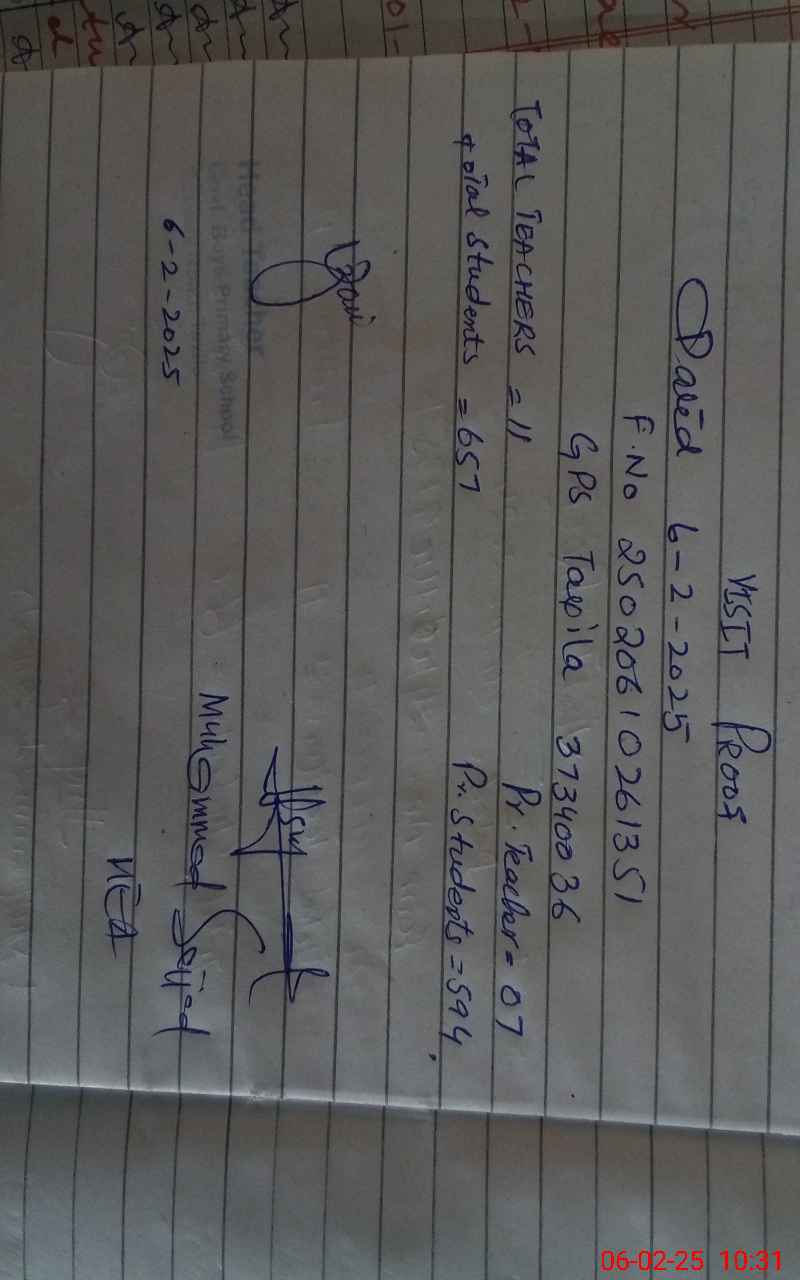 VISIT PROOF
Dated 6-2-2025
F.No 25020610261351
GPS Taxila 37340036
TOTAL TEACHERS = 11 Pr. Teacher = 07
total students = 657 Pr. Students = 594.
Head Teacher
Govt Boys Primary School
6-2-2025
Muhammad Sajjad
06-02-25 10:31